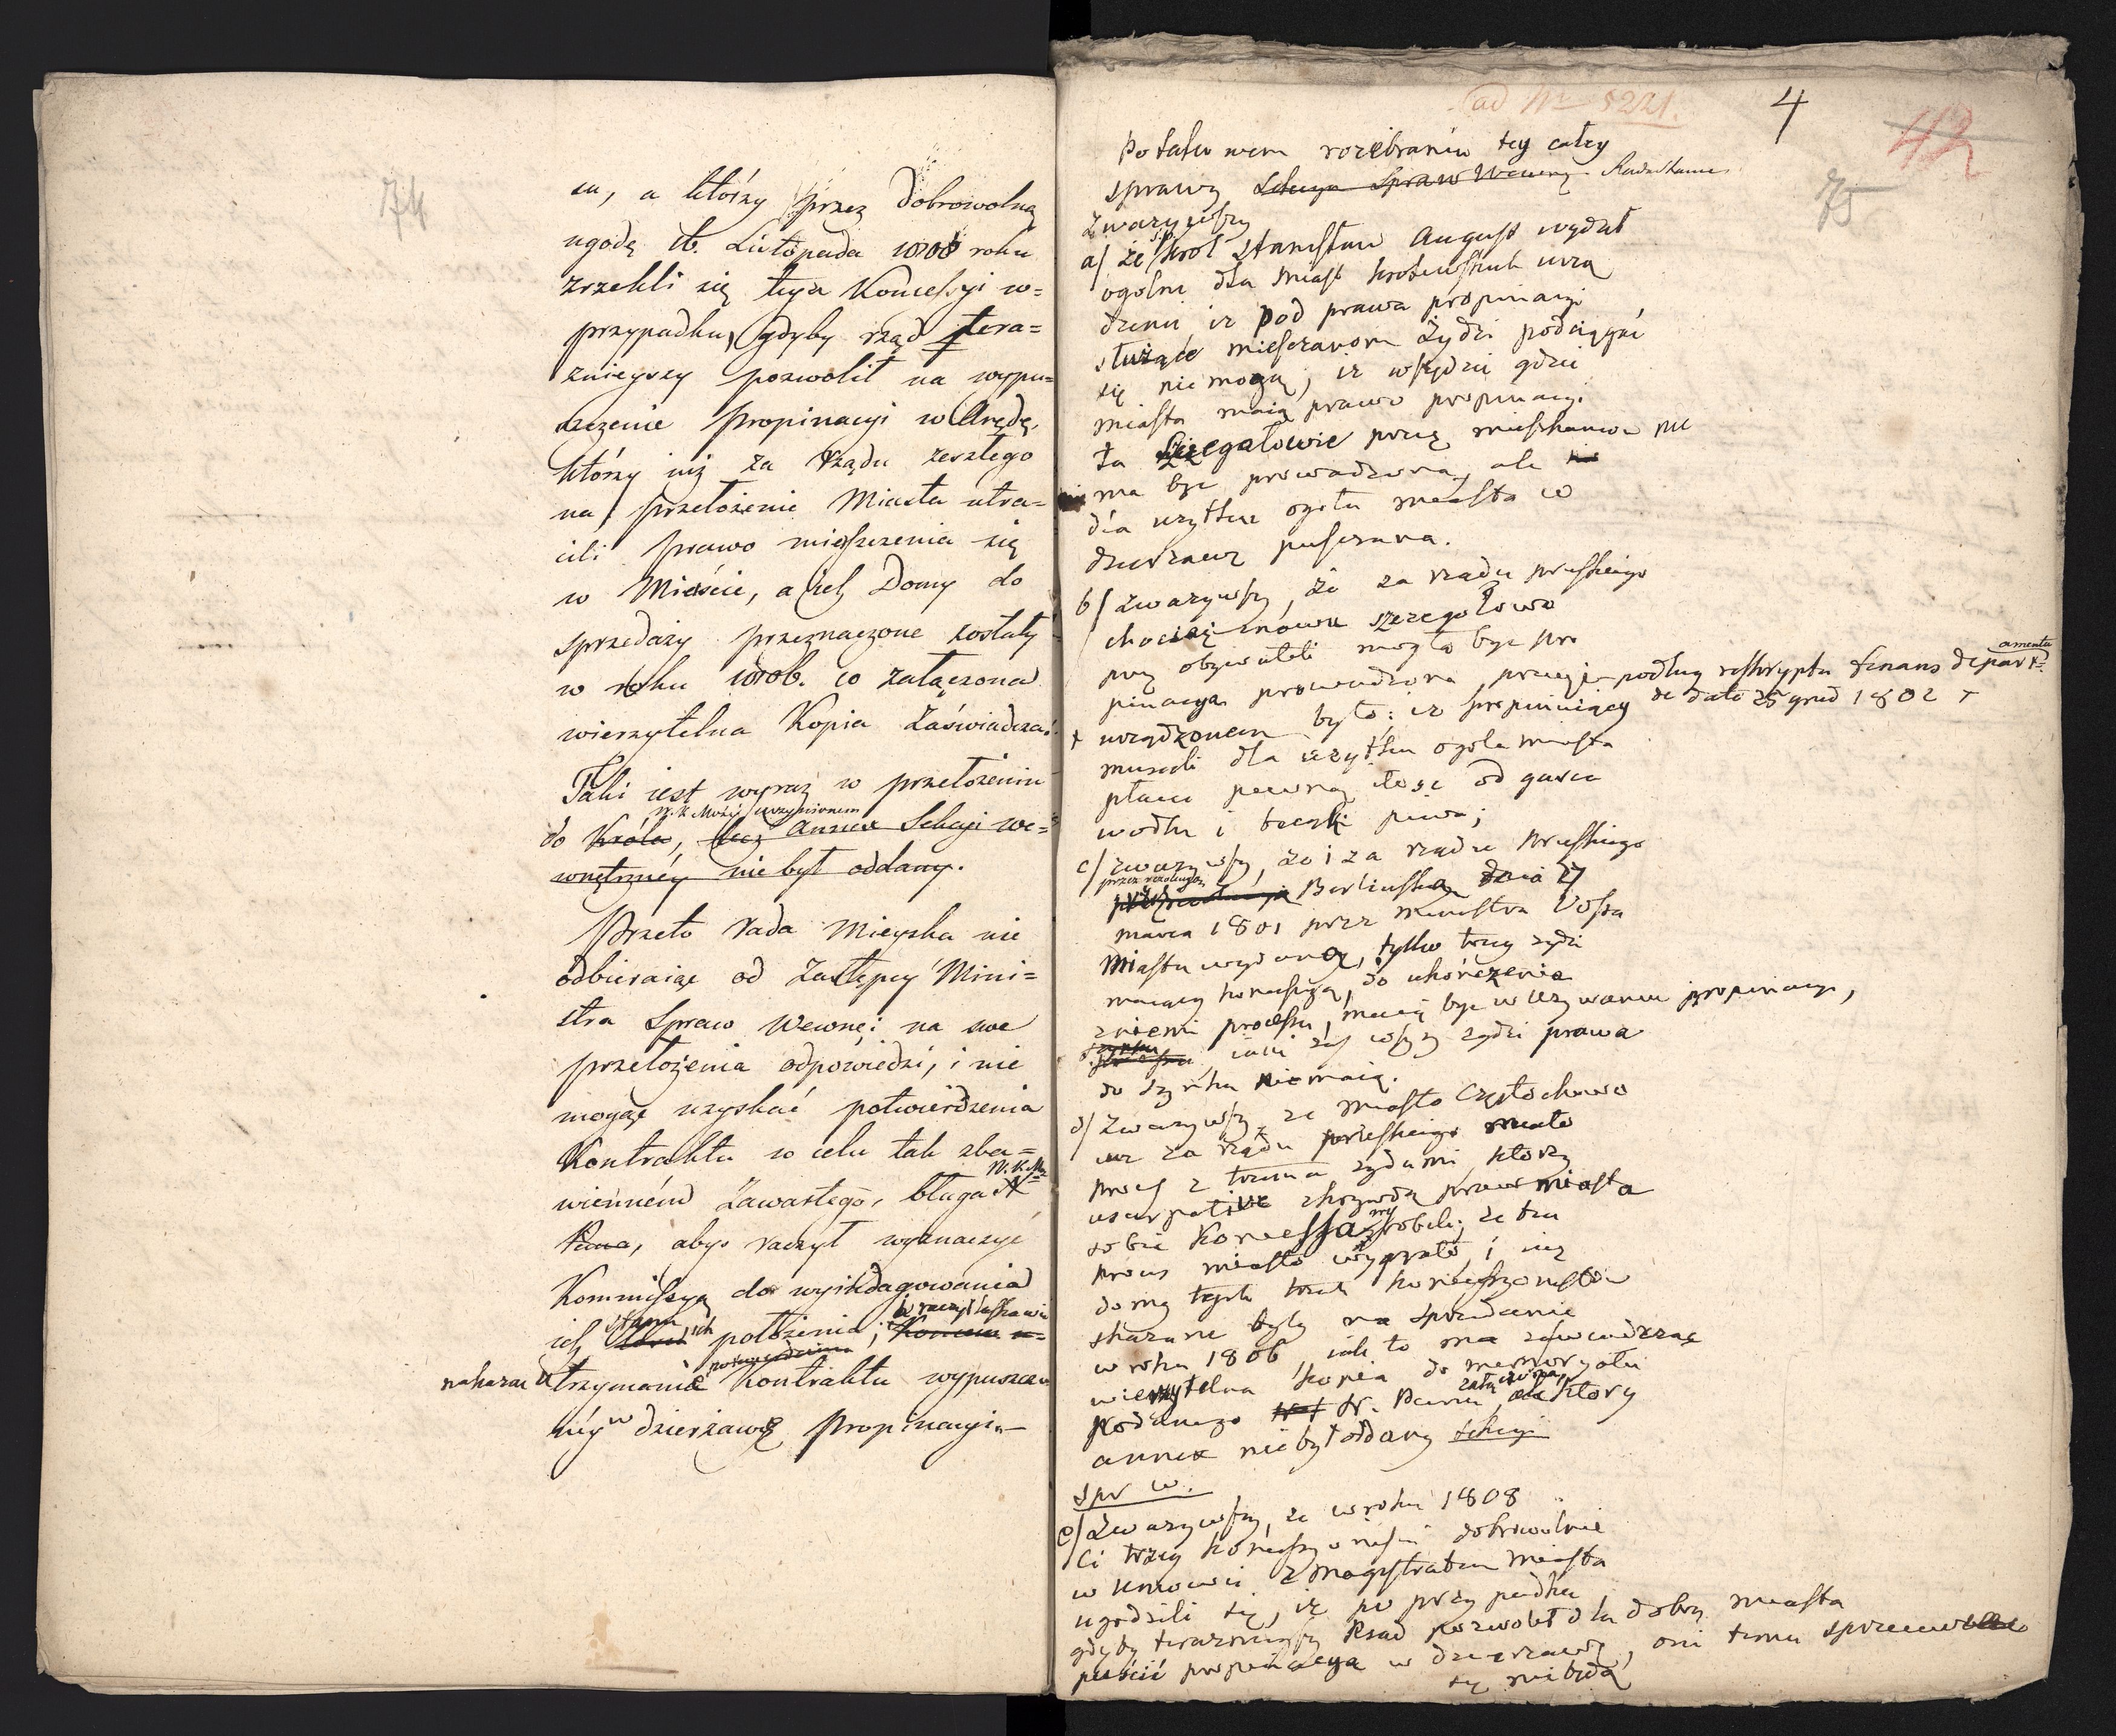 74
su, a którzy przez dobrowolną
ugodę d. Listopada 1808 roku
zrzekli się tego Koncessyi w=
przypadku, gdyby rząd tera=
znieyszy pozwolił na wypu=
szczenie Propinacyi w Arędę,
który iuż za Rządu zeszłego
na przełożenie Miasta utra=
cili prawo mieszczenia się
w Mieście, a ich Domy do
sprzedaży przeznaczone zostały
w roku 1806. co załączona
wierzytelna Kopia Zaświadcza.
Taki iest wyraz w przełożeniu
W. K. Mości uczynionem
do Króla, lecz Annex Sekcyi we=
wnętrznéy nie był oddany.
Przeto rada Mieyska nie
odbieraiąc od Zastępcy Mini=
stra Spraw Wewnę: na swe
przełożenia odpowiedzi, i nie
mogąc uzyskać potwierdzenia
Kontraktu w celu tak zba=
W. K. M.
wiennémd Zawartego, błaga
Pana, abyś raczył wyznaczyć
Kommissyą do wyindagowania
stanu ich w raczył łaskawie
ich położenia;
potwierdzenie
nakazać utrzymanie Kontraktu wypuszczo
néy w dzierżawę Propinacyi.—
ad Nr 5221.
4
42
75
Po takowem rozebraniu tey całey
sprawy Sekcya Spraw Wewnę
Zwazywszy
a) że ś.p. Krol Stanisław August wydał
ogolne dla miast krolewskich urzą
dzenie iz pod prawa propinacyi
służące miesczanom Żydzi podciągać
się nie mogą, iz wszędzie gdzie
miasta maią prawo propinacyi
ta szczegołowie przez mieszkancow nie
ma byc prowadzona, ale
dla uzytku ogołu miasta w
dzierzawę pusczana.
b) Zwazywszy, że za rządu pruskiego
chociaz mowu szczegołowo
przez obywateli mogła byc pro
pinacya prowadzona, przecie podług reskryptu finans departamentu
de dato 25 grud 1802 +
+ urządzonem było: iz propinuiący
musieli dla uzytku ogołu miasta
płacic pewną ilosc od garca
wodki i beczki piwa;
c) zwazywszy, że i za rządu Pruskiego
przez rezolucyą
Berlinską dnia 27
marca 1801 przez ministra Vossa
Miastu wydaną, tylko trzey zydzi
maiący koncessyą, do ukończenia
z niemi processu, maią byc w uzywaniu propinacyi,
inni zas wszyscy zydzi prawa
do szynku nie maią.
d) Zwazywszy, ze miasto Częstochowa
iuz za rządu pruskiego miało
proces z trzema zydami, ktorzy
usurpative z krzywdą praw miasta
sobie Koncessą wyrobili; ze ten
proces miasto wygrało, i iuz
domy tych trzech koncessyonistow
skazane były na sprzedanie
w roku 1806, iak to ma zaswiadczac
wierzytelna kopia do memoryału
załączona,
podanego N. Panu, ktory
annex nie był oddany Sekcyi
spr w.
e) Zwazywszy, ze w roku 1808
Ci trzey koncessyonisci dobrowolnie
w umowie z Magistratem Miasta
ugodzili się, iz po przypadku
gdyby terazniejszy Rząd pozwolił dla dobra miasta
puścić propinacya w dzierzawę, oni temu sprzeciwiac
się nie będą